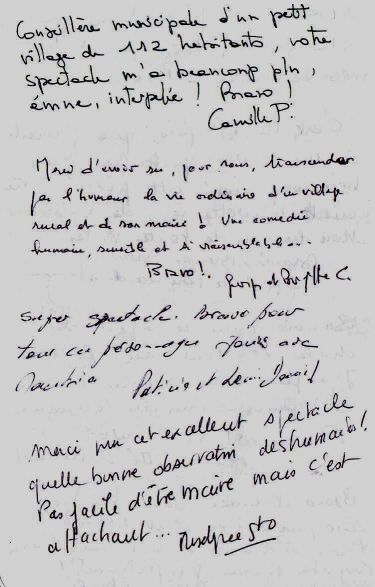 Conseillère municipale d'un petit
village de 112 habitants, votre
spectacle m'a beaucoup plu,
émue, interpellée ! Bravo !
Camille P.
Merci d'avoir su, pour nous, transcender
par l'humour la vie ordinaire d'un village
rural et de son maire ! Une comédie
humaine, sensible et si vraisemblable...
Bravo !. et Brigitte C.
super spectacle. Bravo pour
tous ces personnages joués avec
Patricia et
Merci pour cet excellent spectacle
quelle bonne observation des humains !
Pas facile d'être maire mais c'est
attachant...